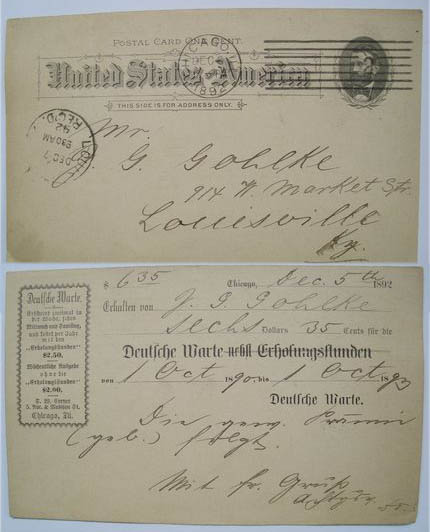 POSTAL CARD ONE CENT.
CHICAGO, ILL.
DEC
1892
United States of America
THIS SIDE IS FOR ADDRESS ONLY.
REC'D.
DEC 7
930AM
92
Mr.
G. Gohlke
914 W. Market Str.
Louisville
Ky.
Deutsche Warte.
Erscheint zweimal in
der Woche, jeden
Mittwoch und Samstag,
und kostet per Jahr
mit den
"Erholungsstunden"
$2.50.
Wöchentliche Ausgabe
ohne die
"Erholungsstunden"
$2.00.
5. Ave. & Madison St.
Chicago, Ill.
$ 6 35 Chicago, Dec. 5th 1892
Erhalten von J. G. Gohlke
sechs Dollars 35 Cents für die
Deutsche Warte nebst Erholungsstunden
von 1 Oct 1890 bis 1 Oct 1893
Deutsche Warte.
Die gew. Prämie
(geb.) folgt.
Mit fr. Gruß